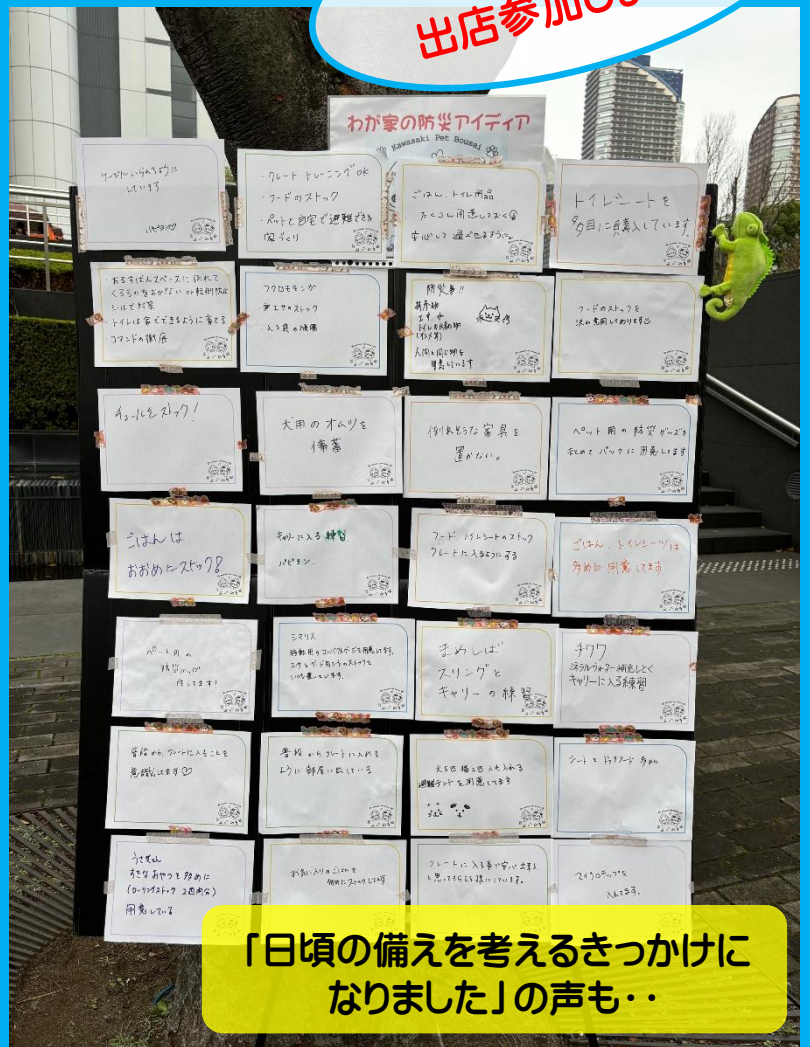 出店参加
わが家の防災アイディア
Kawasaki Pet Bousai
しています
・クレートトレーニングOK
・フードのストック
・ペットと自宅で避難できる
家づくり
ごはん、トイレ用品
たくさん用意しておく
安心して過ごせるように
トイレシートを
多目に購入しています。
・おるすばんスペースに倒れて
くるものをおかない or 転倒防止
・トイレは家でできるように育てる
・コマンドの徹底
フクロモモンガ
エサのストック
入る袋の準備
防災事!!
人間と同じ物を
用意しています
フードのストックを
沢山用意してあります
チュールをストック!
犬用のオムツを
備蓄
倒れそうな家具を
置かない。
ペット用の防災グッズを
まとめてバックに用意してます
ごはんは
おおめにストック!
キャリーに入る練習
パピヨン
フード、トイレシートのストック
クレートに入るようにする
ごはん、トイレシーツは
多めに用意してます。
ペット用の
防災
作ってます!
シマリス
移動用のコンパクトケージを用意してます。
いつも置いています。
まめしば
スリングと
キャリーの練習
チワワ
ミネラルウォーター補充しとく
キャリーに入る練習
普段から、クレートに入ることを
意識してます♡
普段からクレートに入れる
ように部屋に出している
犬5匹猫2匹人も入れる
避難テントを用意してます
シートとドライフード多め
うさぎさん
すきなおやつを多めに
(ローリングストック 2週間分)
用意している
お気に入りのごはんを
多めにストックしてます
クレートに入る事が安心出来る
と思ってもらえる様にしています。
マイクロチップを
入れてます。
「日頃の備えを考えるきっかけに
なりました」の声も‥